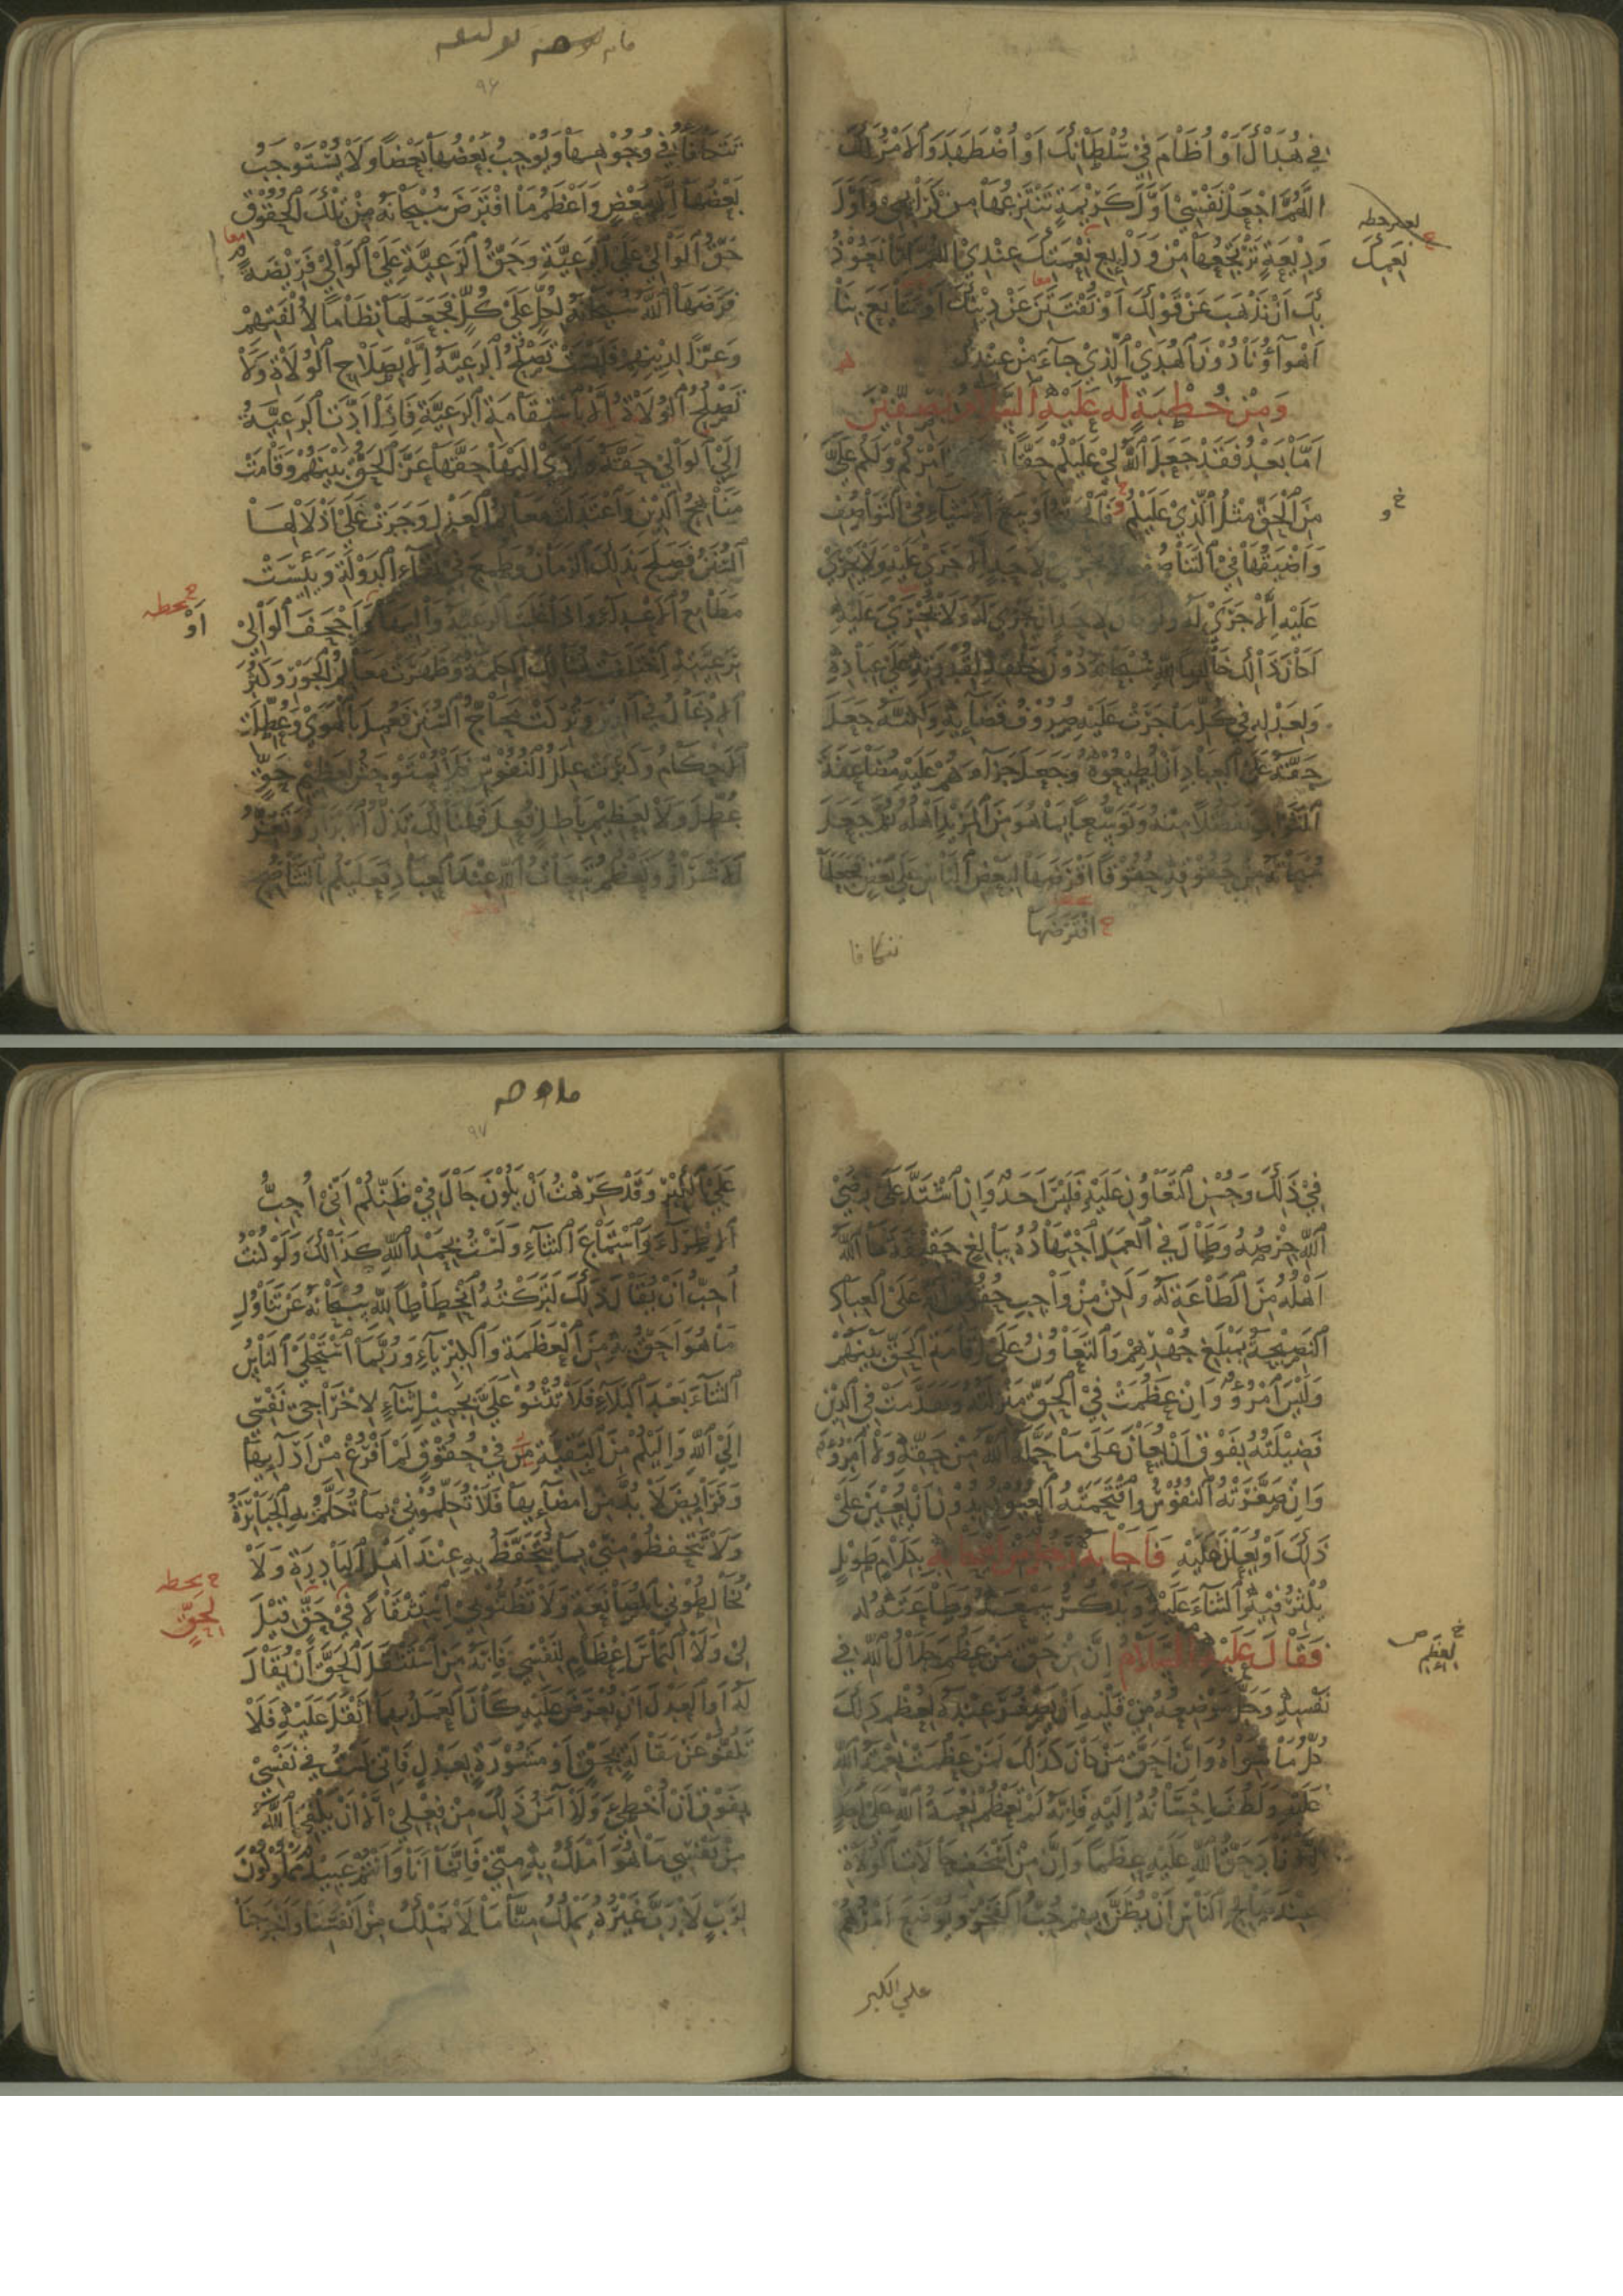 فِي هُدَاكَ أَوْ أُضَامَ فِي سُلْطَانِكَ أَوْ أُضْطَهَدَ وَالْأَمْرُ لَكَ
اللَّهُمَّ اجْعَلْ نَفْسِي أَوَّلَ كَرِيمَةٍ تَنْتَزِعُهَا مِنْ كَرَائِمِي وَأَوَّلَ
وَدِيعَةٍ تَرْتَجِعُهَا مِنْ وَدَائِعِ نِعَمِكَ عِنْدِي اللَّهُمَّ إِنَّا نَعُوذُ
بِكَ أَنْ نَذْهَبَ عَنْ قَوْلِكَ أَوْ نُفْتَتَنَ عَنْ دِينِكَ أَوْ تَتَابَعَ بِنَا
أَهْوَاؤُنَا دُونَ الْهُدَى الَّذِي جَاءَ مِنْ عِنْدِكَ
وَمِنْ خُطْبَةٍ لَهُ عَلَيْهِ السَّلَامُ بِصِفِّينَ
أَمَّا بَعْدُ فَقَدْ جَعَلَ اللَّهُ لِي عَلَيْكُمْ حَقًّا أَمْرِكُمْ وَلَكُمْ عَلَيَّ
مِنَ الْحَقِّ مِثْلُ الَّذِي عَلَيْكُمْ فَالْحَقُّ أَوْسَعُ الْأَشْيَاءِ فِي التَّوَاصُفِ
وَأَضْيَقُهَا فِي التَّنَاصُفِ لَا يَجْرِي لِأَحَدٍ إِلَّا جَرَى عَلَيْهِ وَلَا يَجْرِي
عَلَيْهِ إِلَّا جَرَى لَهُ وَلَوْ كَانَ لِأَحَدٍ أَنْ يَجْرِيَ لَهُ وَلَا يَجْرِيَ عَلَيْهِ
لَكَانَ ذَلِكَ خَالِصًا لِلَّهِ سُبْحَانَهُ دُونَ خَلْقِهِ لِقُدْرَتِهِ عَلَى عِبَادِهِ
وَلِعَدْلِهِ فِي كُلِّ مَا جَرَتْ عَلَيْهِ صُرُوفُ قَضَائِهِ وَلَكِنَّهُ جَعَلَ
حَقَّهُ عَلَى الْعِبَادِ أَنْ يُطِيعُوهُ وَجَعَلَ جَزَاءَهُمْ عَلَيْهِ مُضَاعَفَةَ
الثَّوَابِ تَفَضُّلًا مِنْهُ وَتَوَسُّعًا بِمَا هُوَ مِنَ الْمَزِيدِ أَهْلُهُ ثُمَّ جَعَلَ
سُبْحَانَهُ مِنْ حُقُوقِهِ حُقُوقًا افْتَرَضَهَا لِبَعْضِ النَّاسِ عَلَى بَعْضٍ فَجَعَلَهَا
خ افْتَرَضَهَا
تتكافا
نِعَمِكَ
خ و
٩٦
تَتَكَافَأُ فِي وُجُوهِهَا وَيُوجِبُ بَعْضُهَا بَعْضًا وَلَا يُسْتَوْجَبُ
بَعْضُهَا إِلَّا بِبَعْضٍ وَأَعْظَمُ مَا افْتَرَضَ سُبْحَانَهُ مِنْ تِلْكَ الْحُقُوقِ
حَقُّ الْوَالِي عَلَى الرَّعِيَّةِ وَحَقُّ الرَّعِيَّةِ عَلَى الْوَالِي فَرِيضَةٌ
فَرَضَهَا اللَّهُ سُبْحَانَهُ لِكُلٍّ عَلَى كُلٍّ فَجَعَلَهَا نِظَامًا لِأُلْفَتِهِمْ
وَعِزًّا لِدِينِهِمْ فَلَيْسَتْ تَصْلُحُ الرَّعِيَّةُ إِلَّا بِصَلَاحِ الْوُلَاةِ وَلَا
تَصْلُحُ الْوُلَاةُ إِلَّا بِاسْتِقَامَةِ الرَّعِيَّةِ فَإِذَا أَدَّتِ الرَّعِيَّةُ
إِلَى الْوَالِي حَقَّهُ وَأَدَّى إِلَيْهَا حَقَّهَا عَزَّ الْحَقُّ بَيْنَهُمْ وَقَامَتْ
مَنَاهِجُ الدِّينِ وَاعْتَدَلَتْ مَعَالِمُ الْعَدْلِ وَجَرَتْ عَلَى أَذْلَالِهَا
السُّنَنُ فَصَلَحَ بِذَلِكَ الزَّمَانُ وَطُمِعَ فِي بَقَاءِ الدَّوْلَةِ وَيَئِسَتْ
مَطَامِعُ الْأَعْدَاءِ وَإِذَا غَلَبَتِ الرَّعِيَّةُ وَالِيَهَا وَأَجْحَفَ الْوَالِي
بِرَعِيَّتِهِ اخْتَلَفَتْ هُنَالِكَ الْكَلِمَةُ وَظَهَرَتْ مَعَالِمُ الْجَوْرِ وَكَثُرَ
الْإِدْغَالُ فِي الدِّينِ وَتُرِكَتْ مَحَاجُّ السُّنَنِ فَعُمِلَ بِالْهَوَى وَعُطِّلَتِ
الْأَحْكَامُ وَكَثُرَتْ عِلَلُ النُّفُوسِ فَلَا يُسْتَوْحَشُ لِعَظِيمِ حَقٍّ
عُطِّلَ وَلَا لِعَظِيمِ بَاطِلٍ فُعِلَ فَهُنَالِكَ تَذِلُّ الْأَبْرَارُ وَتَعِزُّ
الْأَشْرَارُ وَتَعْظُمُ تَبِعَاتُ اللَّهِ عِنْدَ الْعِبَادِ فَعَلَيْكُمْ بِالتَّنَاصُحِ
خ بخطه
أَوْ
فِي ذَلِكَ وَحُسْنِ التَّعَاوُنِ عَلَيْهِ فَلَيْسَ أَحَدٌ وَإِنِ اشْتَدَّ عَلَى رِضَى
اللَّهِ حِرْصُهُ وَطَالَ فِي الْعَمَلِ اجْتِهَادُهُ بِبَالِغٍ حَقِيقَةَ مَا اللَّهُ
أَهْلُهُ مِنَ الطَّاعَةِ لَهُ وَلَكِنْ مِنْ وَاجِبِ حُقُوقِ اللَّهِ عَلَى الْعِبَادِ
النَّصِيحَةُ بِمَبْلَغِ جُهْدِهِمْ وَالتَّعَاوُنُ عَلَى إِقَامَةِ الْحَقِّ بَيْنَهُمْ
وَلَيْسَ امْرُؤٌ وَإِنْ عَظُمَتْ فِي الْحَقِّ مَنْزِلَتُهُ وَتَقَدَّمَتْ فِي الدِّينِ
فَضِيلَتُهُ بِفَوْقِ أَنْ يُعَانَ عَلَى مَا حَمَّلَهُ اللَّهُ مِنْ حَقِّهِ وَلَا امْرُؤٌ
وَإِنْ صَغَّرَتْهُ النُّفُوسُ وَاقْتَحَمَتْهُ الْعُيُونُ بِدُونِ أَنْ يُعِينَ عَلَى
ذَلِكَ أَوْ يُعَانَ عَلَيْهِ فَأَجَابَهُ رَجُلٌ مِنْ أَصْحَابِهِ بِكَلَامٍ طَوِيلٍ
يُكْثِرُ فِيهِ الثَّنَاءَ عَلَيْهِ وَيَذْكُرُ سَمْعَهُ وَطَاعَتَهُ لَهُ
فَقَالَ عَلَيْهِ السَّلَامُ إِنَّ مِنْ حَقِّ مَنْ عَظُمَ جَلَالُ اللَّهِ فِي
نَفْسِهِ وَجَلَّ مَوْضِعُهُ مِنْ قَلْبِهِ أَنْ يَصْغُرَ عِنْدَهُ لِعِظَمِ ذَلِكَ
كُلُّ مَا سِوَاهُ وَإِنَّ أَحَقَّ مَنْ كَانَ كَذَلِكَ لَمَنْ عَظُمَتْ نِعْمَةُ اللَّهِ
عَلَيْهِ وَلَطُفَ إِحْسَانُهُ إِلَيْهِ فَإِنَّهُ لَمْ تَعْظُمْ نِعْمَةُ اللَّهِ عَلَى أَحَدٍ
إِلَّا زَادَ حَقُّ اللَّهِ عَلَيْهِ عِظَمًا وَإِنَّ مِنْ أَسْخَفِ حَالَاتِ الْوُلَاةِ
عِنْدَ صَالِحِ النَّاسِ أَنْ يُظَنَّ بِهِمْ حُبُّ الْفَخْرِ وَيُوضَعَ أَمْرُهُمْ
علي الكبر
٩٧
عَلَى الْكِبْرِ وَقَدْ كَرِهْتُ أَنْ يَكُونَ جَالَ فِي ظَنِّكُمْ أَنِّي أُحِبُّ
الْإِطْرَاءَ وَاسْتِمَاعَ الثَّنَاءِ وَلَسْتُ بِحَمْدِ اللَّهِ كَذَلِكَ وَلَوْ كُنْتُ
أُحِبُّ أَنْ يُقَالَ ذَلِكَ لَتَرَكْتُهُ انْحِطَاطًا لِلَّهِ سُبْحَانَهُ عَنْ تَنَاوُلِ
مَا هُوَ أَحَقُّ بِهِ مِنَ الْعَظَمَةِ وَالْكِبْرِيَاءِ وَرُبَّمَا اسْتَحْلَى النَّاسُ
الثَّنَاءَ بَعْدَ الْبَلَاءِ فَلَا تُثْنُوا عَلَيَّ بِجَمِيلِ ثَنَاءٍ لِإِخْرَاجِي نَفْسِي
إِلَى اللَّهِ وَإِلَيْكُمْ مِنَ التَّقِيَّةِ فِي حُقُوقٍ لَمْ أَفْرُغْ مِنْ أَدَائِهَا
وَفَرَائِضَ لَا بُدَّ مِنْ إِمْضَائِهَا فَلَا تُكَلِّمُونِي بِمَا تُكَلَّمُ بِهِ الْجَبَابِرَةُ
وَلَا تَتَحَفَّظُوا مِنِّي بِمَا يُتَحَفَّظُ بِهِ عِنْدَ أَهْلِ الْبَادِرَةِ وَلَا
تُخَالِطُونِي بِالْمُصَانَعَةِ وَلَا تَظُنُّوا بِي اسْتِثْقَالًا فِي حَقٍّ قِيلَ
لِي وَلَا الْتِمَاسَ إِعْظَامٍ لِنَفْسِي فَإِنَّهُ مَنِ اسْتَثْقَلَ الْحَقَّ أَنْ يُقَالَ
لَهُ أَوِ الْعَدْلَ أَنْ يُعْرَضَ عَلَيْهِ كَانَ الْعَمَلُ بِهِمَا أَثْقَلَ عَلَيْهِ فَلَا
تَكُفُّوا عَنْ مَقَالَةٍ بِحَقٍّ أَوْ مَشُورَةٍ بِعَدْلٍ فَإِنِّي لَسْتُ فِي نَفْسِي
بِفَوْقِ أَنْ أُخْطِئَ وَلَا آمَنُ ذَلِكَ مِنْ فِعْلِي إِلَّا أَنْ يَكْفِيَ اللَّهُ
مِنْ نَفْسِي مَا هُوَ أَمْلَكُ بِهِ مِنِّي فَإِنَّمَا أَنَا وَأَنْتُمْ عَبِيدٌ مَمْلُوكُونَ
لِرَبٍّ لَا رَبَّ غَيْرُهُ يَمْلِكُ مِنَّا مَا لَا نَمْلِكُ مِنْ أَنْفُسِنَا وَأَخْرَجَنَا
خ بخطه
لِحَقٍّ